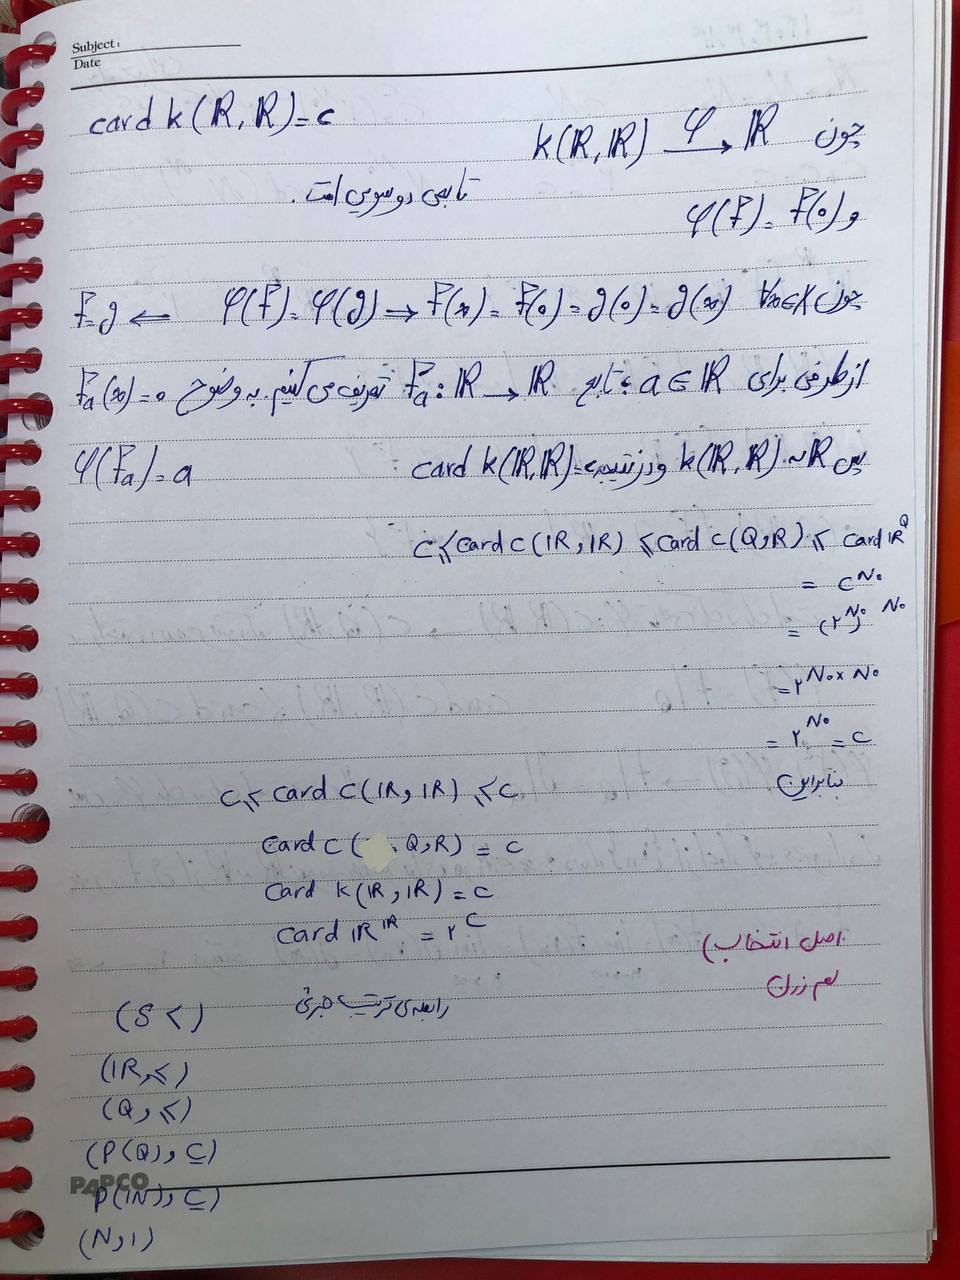 Subject:
Date
card k(ℝ, ℝ) = c
چون k(ℝ, ℝ) —φ→ ℝ
تابعی دوسویی است.
و φ(f) = f(0)
چون ∀x∈X φ(f) = φ(g) → f(x) = f(0) = g(0) = g(x) ⇐ f=g
از طرفی برای a ∈ ℝ تابع fₐ: ℝ → ℝ تعریف می کنیم. به وضوح fₐ(x) = a
پس k(ℝ, ℝ) ~ ℝ و در نتیجه card k(ℝ, ℝ) = c φ(fₐ) = a
c ≤ card c(ℝ, ℝ) ≤ card c(Q, R) ≤ card ℝ^Q
= c^ℵ₀
= (۲^ℵ₀)^ℵ₀
= ۲^ℵ₀×ℵ₀
= ۲^ℵ₀ = c
بنابراین
c ≤ card c(ℝ, ℝ) ≤ c
card c( Q, R) = c
card k(ℝ, ℝ) = c
card ℝ^ℝ = ۲^c
اصل انتخاب)
لم زرن
رابطه‌ی ترتیب جزئی (S <)
(ℝ, ≤)
(Q, ≤)
(P(Q), ⊆)
PAPCO
P(ℕ), ⊆)
(N, ۱)